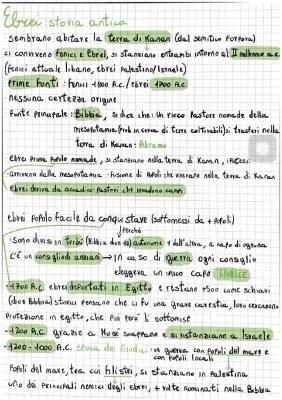 Ebrei storia antica
sembrano abitare la terra di Kanan (dal semitico porpora)
ci convivono fenici e Ebrei, si stanziano entrambi intorno al II millennio a.c
(fenici attuale libano, ebrei Palestina/Israele)
prime fonti: fenici 1800 A.C. / ebrei 1700 A.C.
nessuna certezza origine
Fonte principale: Bibbia, si dice che: Un ricco Pastore nomade della
mesopotamia (prob in cerca di terre coltivabili) si trasferì nella
terra di Kanan: Abramo
ebrei prima Popolo nomade, si stanziano nella terra di Kanan, ipotesi:
arrivano dalla mesopotamia - Fusione di Popoli che vivevano nella terra di Kanan
ebrei deriva da accadico Pastori che
ebrei Popolo facile da conquistare (sottomessi da + Popoli)
Perché
Sono divisi in tribù (Bibbia dice 12) autonome + dall'altra, a capo di ognuna
C'è un consiglio di anziani → In caso di guerra ogni consiglio
eleggeva un unico capo GIUDICE
-1700 A.C. ebrei deportati in Egitto e restano 500 come schiavi
(dice Bibbia) storici Pensano che ci fu una grave carestia, loro cercarono
Protezione in egitto, che Poi però li sottomise
-1200 A.C. grazie a Mosé scappano e si stanziano a Israele
-1200-1000 A.C. epoca dei Giudici: in guerra con Popoli del mare e
con popoli locali
Popoli del mare, tra cui filistei, si stanziano in Palestina
uno dei principali nemici degli ebrei, + volte nominati nella Bibbia